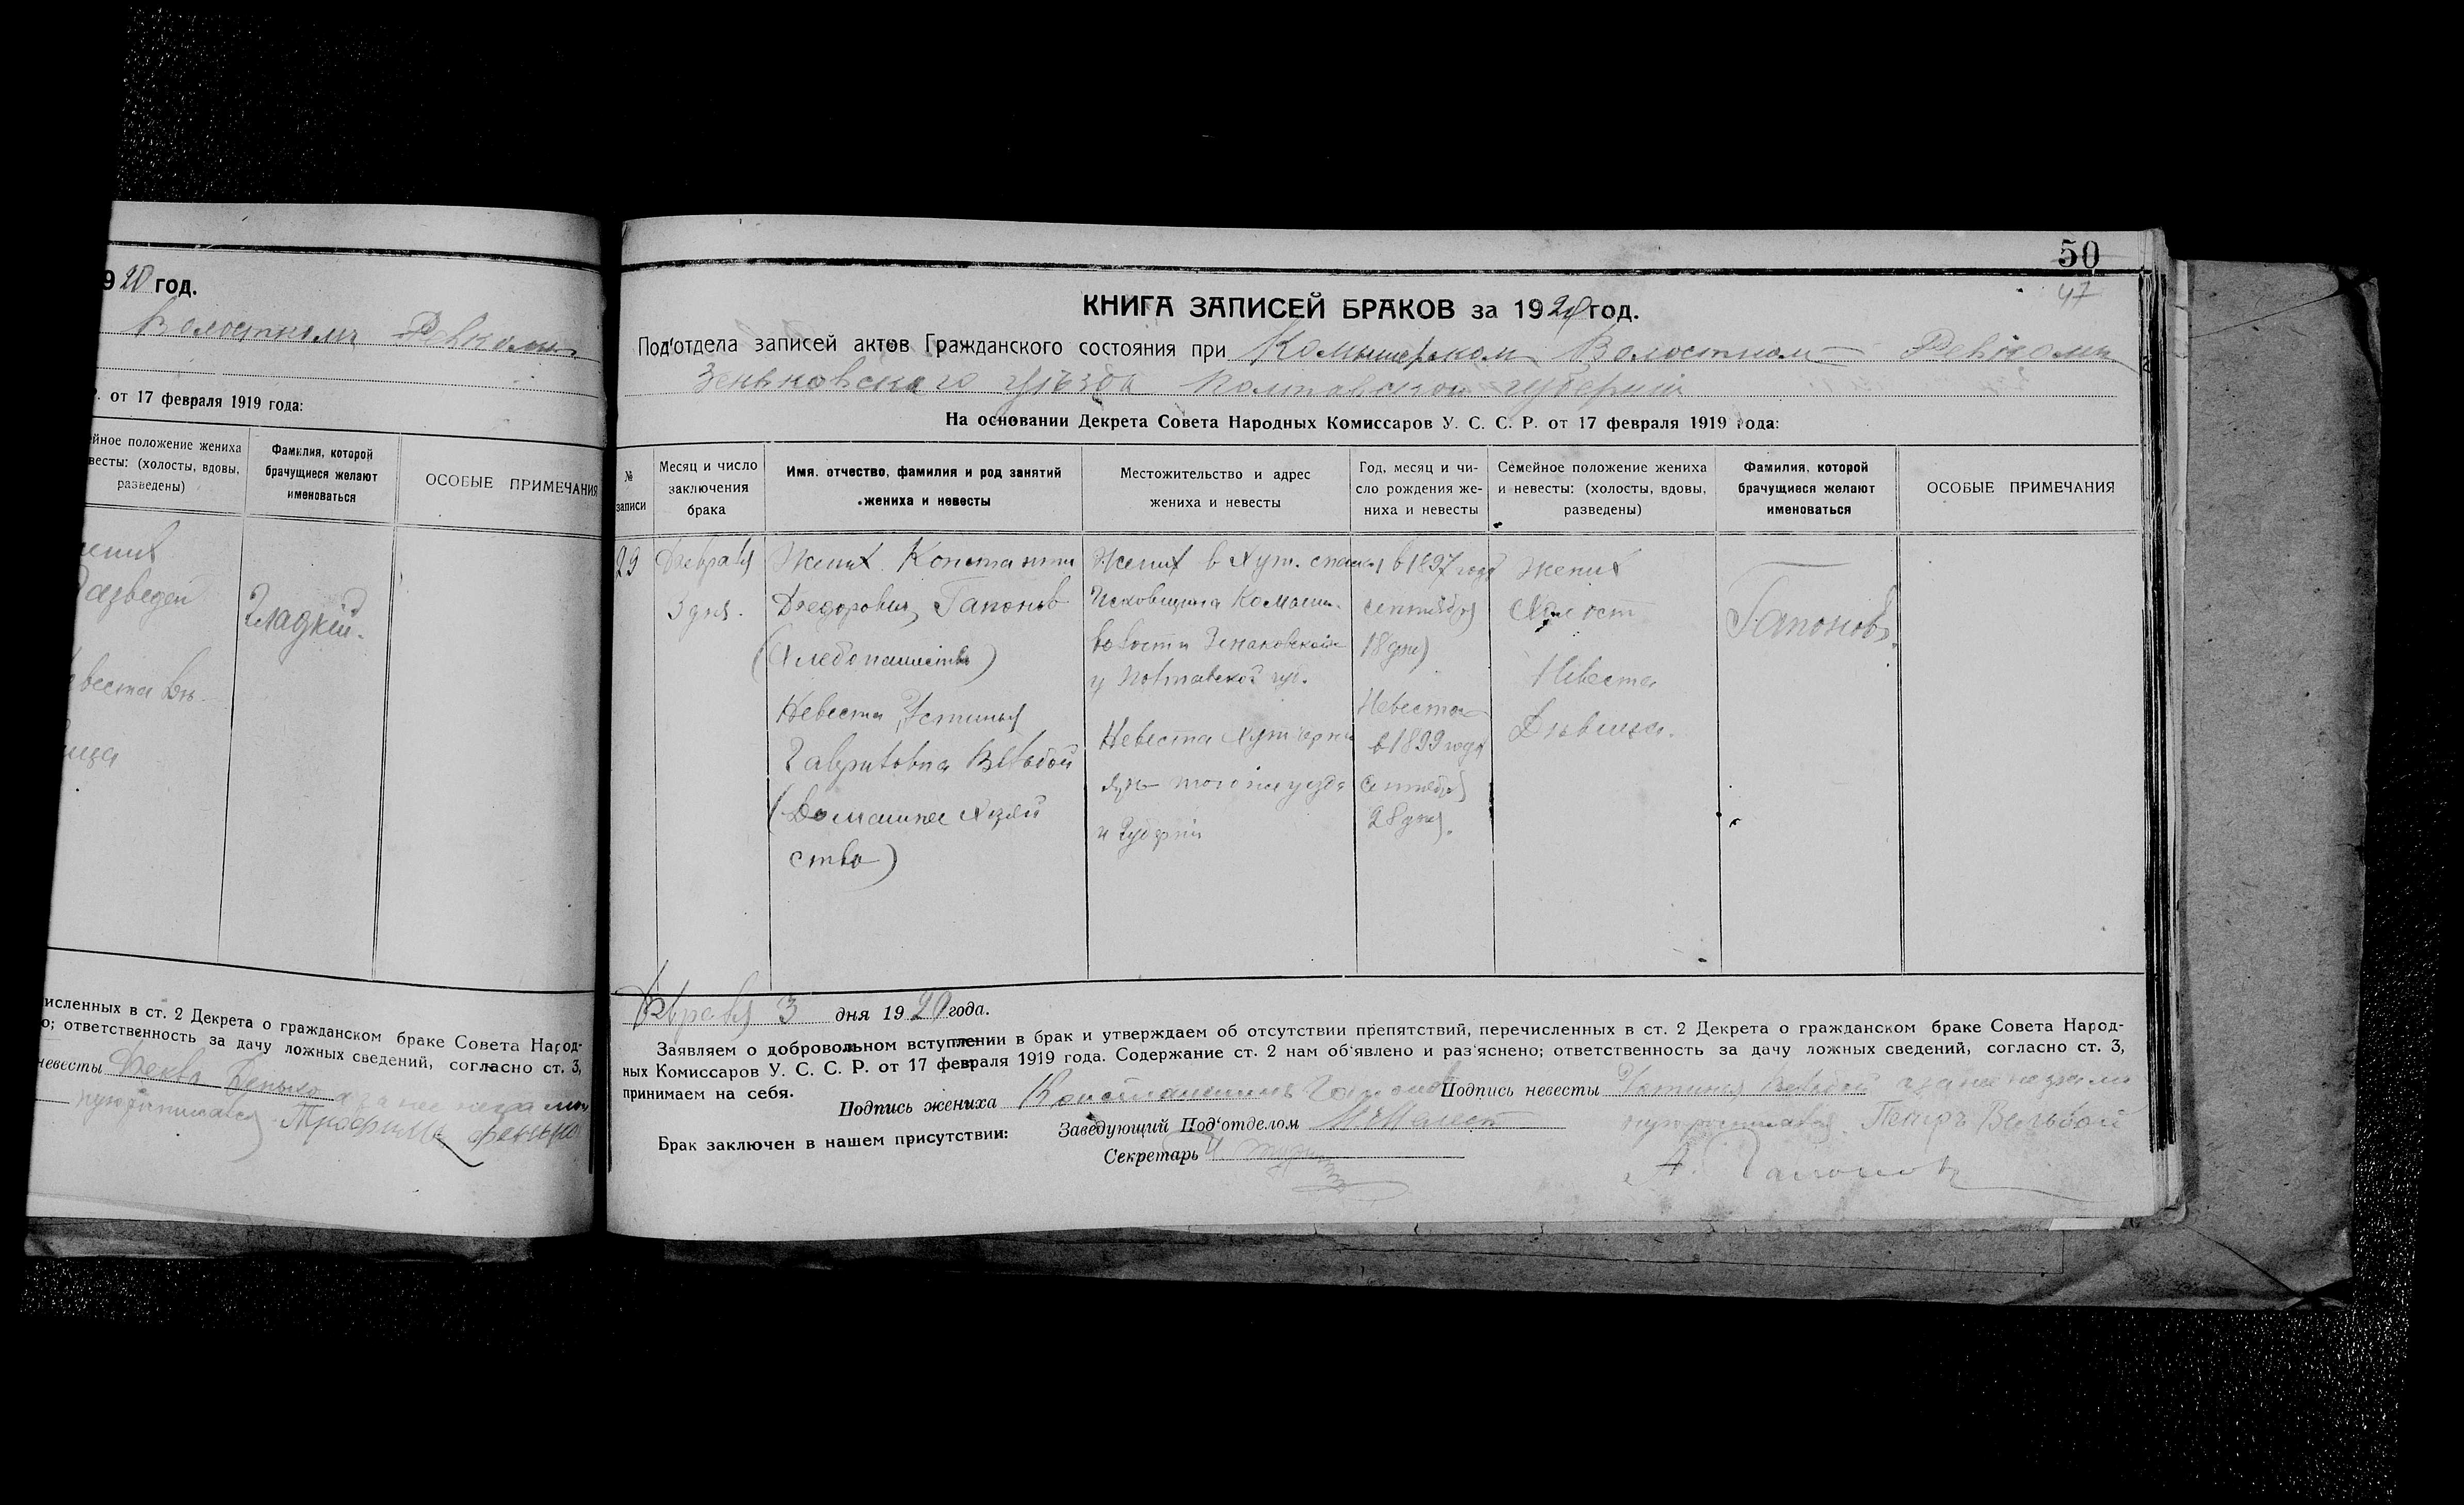 920 год.
Волостном Ревкоме
Р. от 17 февраля 1919 года:
ейное положение жениха
весты: (холосты, вдовы,
разведены)
Фамилия, которой
брачущиеся желают
именоваться
ОСОБЫЕ ПРИМЕЧАНИЯ
жених
Разведен
Гладкій.
Невеста Дѣ-
вица
исленных в ст. 2 Декрета о гражданском браке Совета Народ-
о; ответственность за дачу ложных сведений, согласно ст. 3,
невесты
а за нее неграмот
Трофимъ
50
47
КНИГА ЗАПИСЕЙ БРАКОВ за 1920 год.
Под'отдела записей актов Гражданского состояния при Волостном Ревкоме
Зеньковского уѣзда Полтавской губерніи
На основании Декрета Совета Народных Комиссаров У. С. С. Р. от 17 февраля 1919 года:
№
записи
Месяц и число
заключения
брака
Имя, отчество, фамилия и род занятий
жениха и невесты
Местожительство и адрес
жениха и невесты
Год, месяц и чи-
сло рождения же-
ниха и невесты
Семейное положение жениха
и невесты: (холосты, вдовы,
разведены)
Фамилия, которой
брачущиеся желают
именоваться
ОСОБЫЕ ПРИМЕЧАНИЯ
29
Февраля
3 дня.
Жених Константин
Федорович Гапонов
(Хлебопашество)
Невеста Устинья
Гавриловна Вельбой
(Домашнее хозяй
ство)
Жених в Хут.
волости Зеньковского
у Полтавской губ.
Невеста Хут
того же уезда
и Губерніи
в 1897 года
сентября
18 дня
Невеста
в 1899 года
Сентября
28 дня.
Жених
Холост
Невеста
Дѣвица.
Гапоновъ.
Февраля 3 дня 1920 года.
Заявляем о добровольном вступлении в брак и утверждаем об отсутствии препятствий, перечисленных в ст. 2 Декрета о гражданском браке Совета Народ-
ных Комиссаров У. С. С. Р. от 17 февраля 1919 года. Содержание ст. 2 нам об'явлено и раз'яснено; ответственность за дачу ложных сведений, согласно ст. 3,
принимаем на себя.
Подпись жениха Константинъ Гапонов
Подпись невесты Устинья Вельбой а за нее неграмот
Брак заключен в нашем присутствии:
Заведующий Под'отделом
Секретарь
Петръ Вельбой
А. Гапоновъ